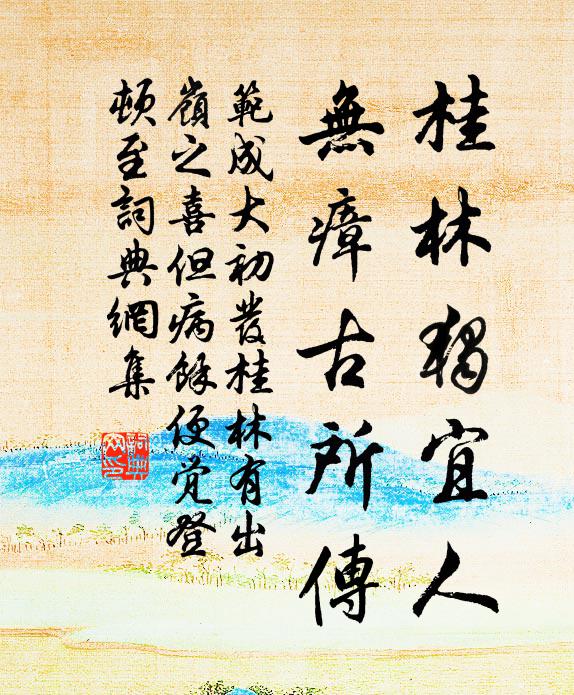 桂林獨宜人
無瘴古所傳
範成大初發桂林有出
嶺之喜但病餘便覺登
頓至詞典網集